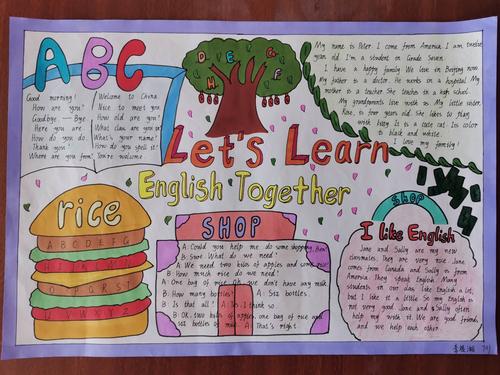 ABC
Good morning!
How are you?
Goodbye — Bye
Here you are
How do you do
Thank you
Where are you from?
Welcome to China
Nice to meet you
How old are you?
What class are you in?
What's your name?
How do you spell it?
You're welcome
D E G
H M F
My name is Peter I come from America I am twelve
year old I'm a student in Grade Seven
I have a happy family We live in Beijing now
My father is a doctor. He works in a hospital My
mother is a teacher She teaches in a high school
My grandparents live with us My little sister,
Rose, is four years old She likes to play
with kitty It is a cute cat Its color
is black and white.
I love my family!
Let's Learn
English Together
rice
A B C D E F G
U V W X Y Z
SHOP
A: Could you help me do some shopping, Ben?
B: Sure. What do we need?
A: We need two kilos of apples and some rice
B: How much rice do we need?
A: One bag of rice Oh, we don't have any milk
B: How many bottles?
A: Six bottles.
B: Is that all?
A: Yes I think so
B: OK, two kilos of apples, one bag of rice and
six bottles of milk
A: That's right
SHOP
I like English
Jane and Sally are my new
classmates. They are very nice Jane
comes from Canada and Sally is from
America. They speak English Many
students in our class like English a lot,
but I like it a little So my English is
not very good Jane and Sally often
help me with it. We are good friends,
and we help each other.